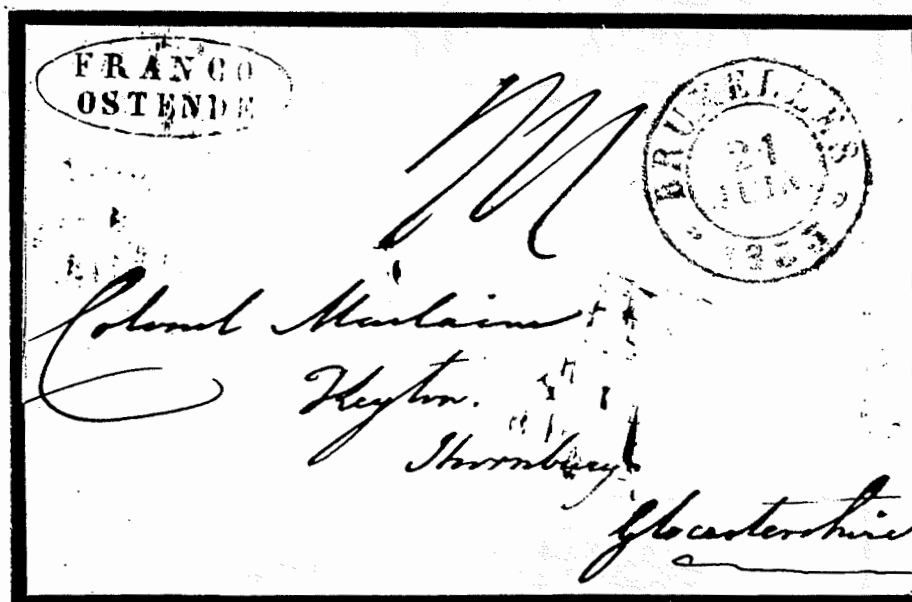 FRANCO
OSTENDE
BRUXELLES
21
JUIN
Colonel Maclaine
Thornbury
Glocestershire